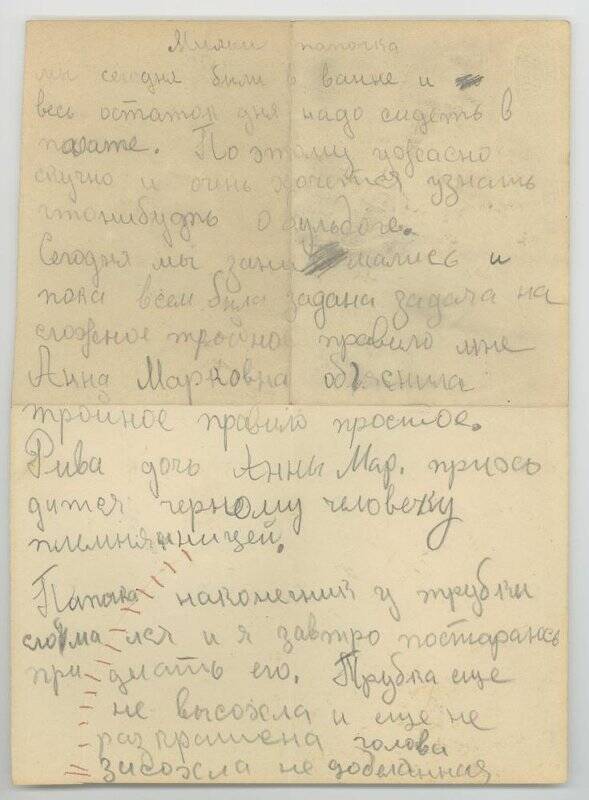 Милый папочка
мы сегодня были в ванне и
весь остаток дня надо сидеть в
палате. Поэтому ужасно
скучно и очень хочется узнать
чтонибудь о бульдоге.
Сегодня мы занимались и
пока всем была задана задача на
сложное тройное правило мне
Анна Марковна объяснила
тройное правило простое.
Рива дочь Анны Мар. приось
дится черному человеку
племнянницей.
Папочка наконечник у трубки
сломался и я завтро постараюсь
приделать его. Трубка еще
не высохла и еще не
разкрашена голова
засохла не доделанная